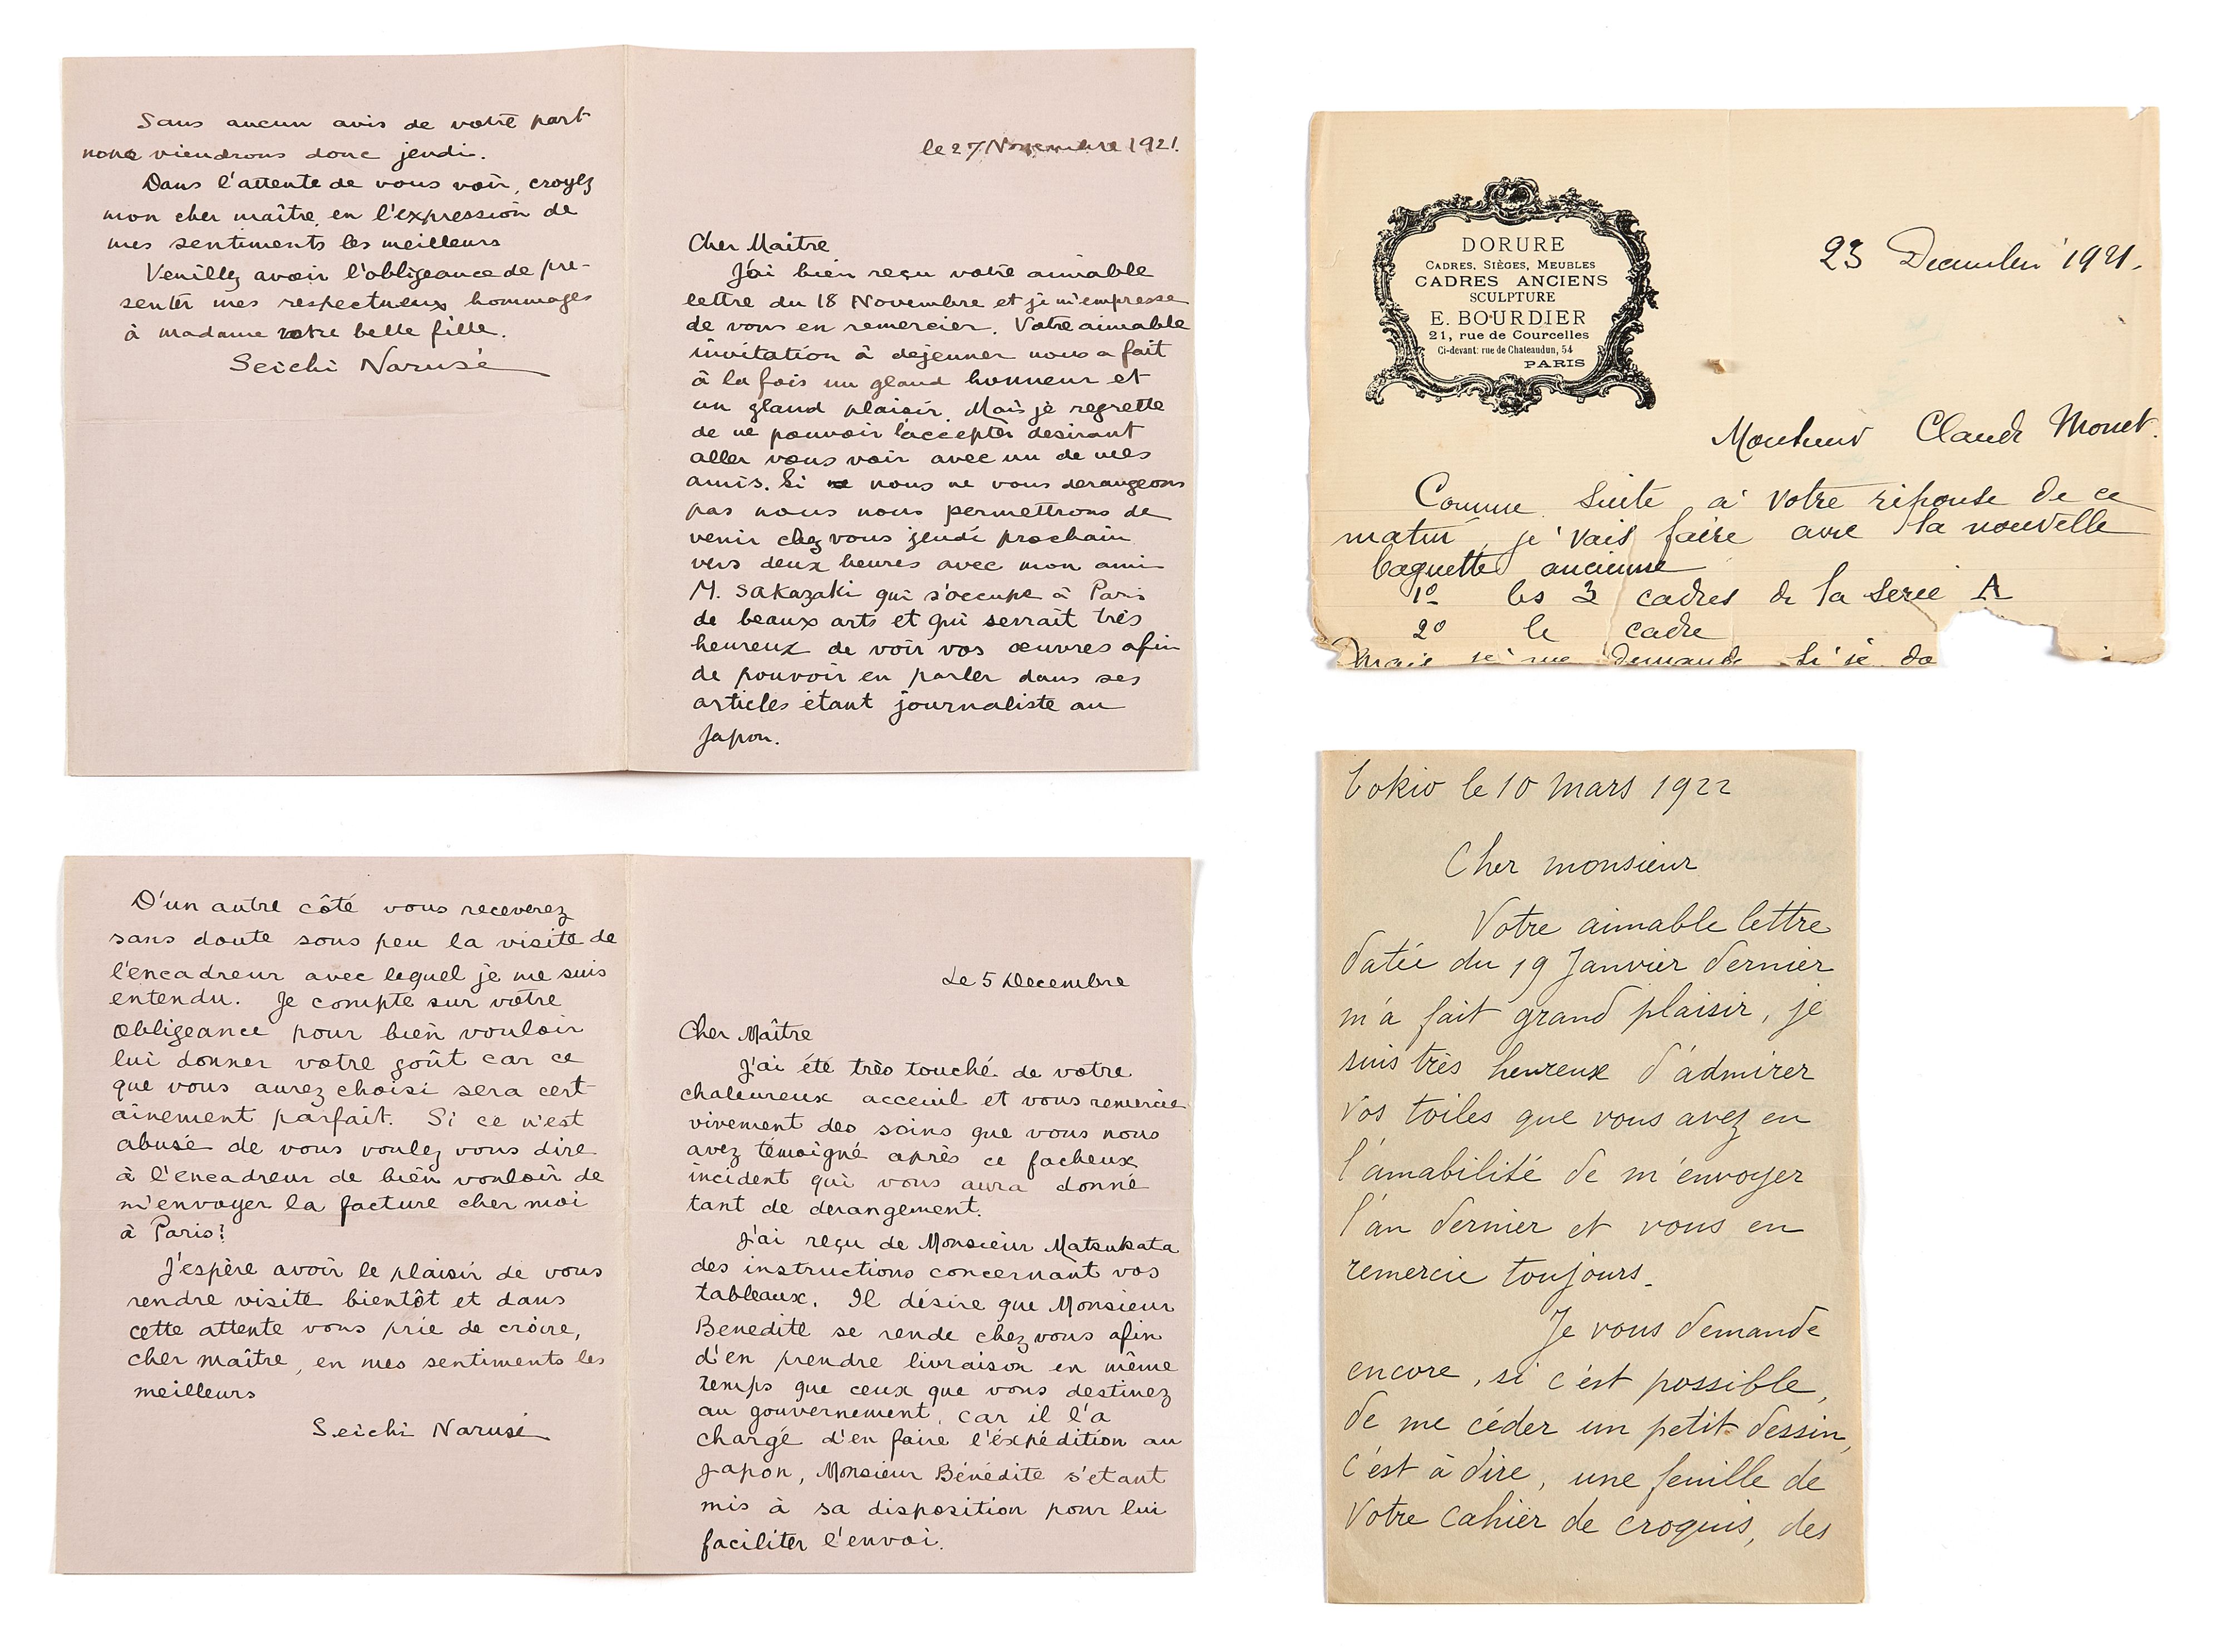 le 27 Novembre 1921.
Cher Maitre
J'ai bien reçu votre aimable
lettre du 18 Novembre et je m'empresse
de vous en remercier. Votre aimable
invitation à dejeuner nous a fait
à la fois un gland honneur et
un gland plaisir. Mais je regrette
de ne pouvoir l'accepter desirant
aller vous voir avec un de mes
amis. Si nous ne vous derangeons
pas nous nous permettrons de
venir chez vous jeudi prochain
vers deux heures avec mon ami
M. Sakazaki qui s'occupe à Paris
de beaux arts et qui serrait très
heureux de voir vos œuvres afin
de pouvoir en parler dans ses
articles étant journaliste au
Japon.
Sans aucun avis de votre part
nous viendrons donc jeudi.
Dans l'attente de vous voir, croyez
mon cher maître en l'expression de
mes sentiments les meilleurs
Veuillez avoir l'obligeance de pre-
senter mes respectueux hommages
à madame votre belle fille.
Seichi Narusé
Le 5 Decembre
Cher Maître
J'ai été très touché de votre
chaleureux acceuil et vous remercie
vivement des soins que vous nous
avez témoigné après ce facheux
incident qui vous aura donné
tant de derangement.
J'ai reçu de Monsieur Matsukata
des instructions concernant vos
tableaux. Il désire que Monsieur
Benedite se rende chez vous afin
d'en prendre livraison en même
temps que ceux que vous destinez
au gouvernement, car il l'a
chargé d'en faire l'éxpédition au
Japon, Monsieur Bénédite s'etant
mis à sa disposition pour lui
faciliter l'envoi.
D'un autre côté vous receverez
sans doute sous peu la visite de
l'encadreur avec lequel je me suis
entendu. Je compte sur votre
obligeance pour bien vouloir
lui donner votre goût car ce
que vous aurez choisi sera cert
ainement parfait. Si ce n'est
abusé de vous voulez vous dire
à l'encadreur de bien vouloir de
m'envoyer la facture cher moi
à Paris?
J'espère avoir le plaisir de vous
rendre visite bientôt et dans
cette attente vous prie de croire,
cher maître, en mes sentiments les
meilleurs
Seichi Narusé
DORURE
CADRES, SIÈGES, MEUBLES
CADRES ANCIENS
SCULPTURE
E. BOURDIER
21, rue de Courcelles
Ci-devant: rue de Chateaudun, 54
PARIS
23 Decembre 1921.
Monsieur Claude Monet.
Comme suite à votre réponse de ce
matin, je vais faire avec la nouvelle
baguette ancienne
1º les 3 cadres de la serie A
2º le cadre
Mais je me demande si je
Tokio le 10 mars 1922
Cher monsieur
Votre aimable lettre
datée du 19 Janvier dernier
m'a fait grand plaisir, je
suis très heureux d'admirer
vos toiles que vous avez eu
l'amabilité de m'envoyer
l'an dernier et vous en
remercie toujours.
Je vous demande
encore, si c'est possible,
de me céder un petit dessin,
c'est à dire, une feuille de
votre cahier de croquis, des